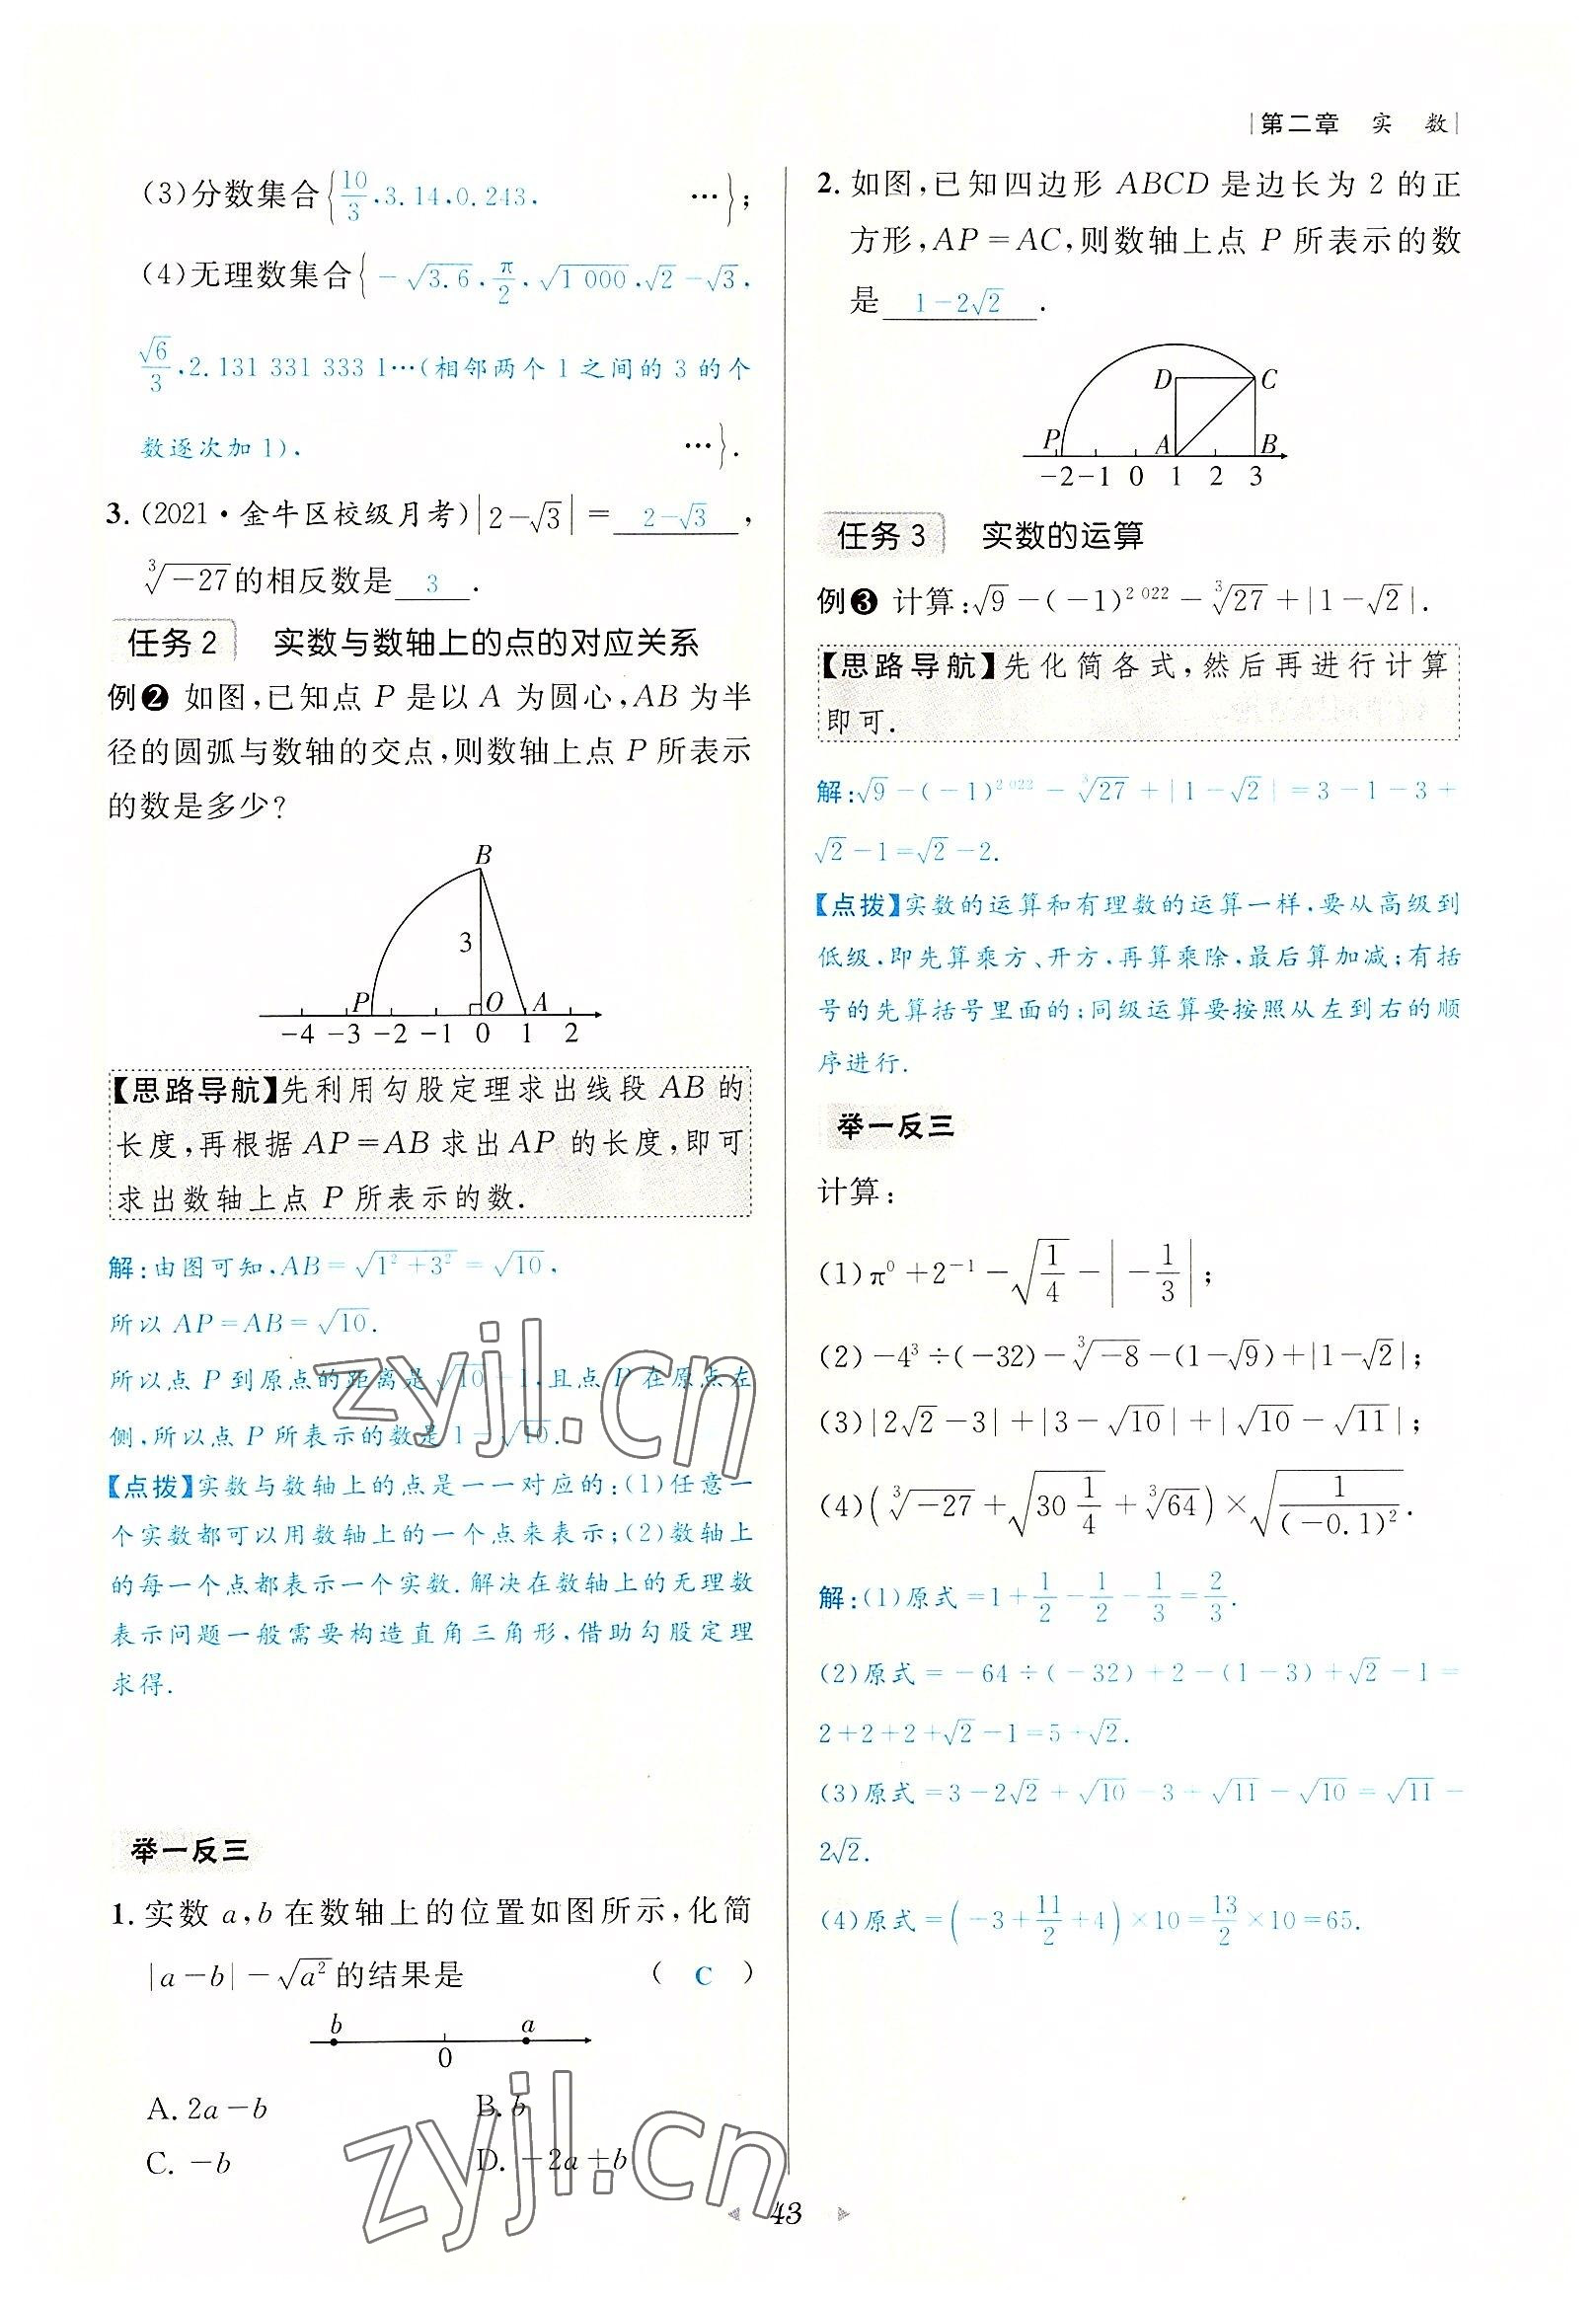 第二章 实 数
(3)分数集合{10/3,3.14,0.243, …};
(4)无理数集合{-√3.6,π/2,√1 000,√2-√3,
√6/3,2.131 331 333 1…(相邻两个1之间的3的个
数逐次加1), …}.
3. (2021·金牛区校级月考)|2-√3|= 2-√3 ,
³√-27的相反数是 3 .
任务2 实数与数轴上的点的对应关系
例❷ 如图,已知点P是以A为圆心,AB为半
径的圆弧与数轴的交点,则数轴上点P所表示
的数是多少?
B
3
P O A
-4 -3 -2 -1 0 1 2
【思路导航】先利用勾股定理求出线段AB的
长度,再根据AP=AB求出AP的长度,即可
求出数轴上点P所表示的数.
解:由图可知,AB=√1²+3²=√10,
所以AP=AB=√10.
所以点P到原点的距离是√10-1,且点P在原点左
侧,所以点P所表示的数是1-√10.
【点拨】实数与数轴上的点是一一对应的:(1)任意一
个实数都可以用数轴上的一个点来表示;(2)数轴上
的每一个点都表示一个实数.解决在数轴上的无理数
表示问题一般需要构造直角三角形,借助勾股定理
求得.
举一反三
1. 实数a,b在数轴上的位置如图所示,化简
|a-b|-√a²的结果是 ( C )
b a
0
A. 2a-b B. b
C. -b D. -2a+b
2. 如图,已知四边形ABCD是边长为2的正
方形,AP=AC,则数轴上点P所表示的数
是 1-2√2 .
D C
P A B
-2 -1 0 1 2 3
任务3 实数的运算
例❸ 计算:√9-(-1)²⁰²²-³√27+|1-√2|.
【思路导航】先化简各式,然后再进行计算
即可.
解:√9-(-1)²⁰²²-³√27+|1-√2|=3-1-3+
√2-1=√2-2.
【点拨】实数的运算和有理数的运算一样,要从高级到
低级,即先算乘方、开方,再算乘除,最后算加减;有括
号的先算括号里面的;同级运算要按照从左到右的顺
序进行.
举一反三
计算:
(1)π⁰+2⁻¹-√1/4-|-1/3|;
(2)-4³÷(-32)-³√-8-(1-√9)+|1-√2|;
(3)|2√2-3|+|3-√10|+|√10-√11|;
(4)(³√-27+√30 1/4+³√64)×√1/(-0.1)².
解:(1)原式=1+1/2-1/2-1/3=2/3.
(2)原式=-64÷(-32)+2-(1-3)+√2-1=
2+2+2+√2-1=5+√2.
(3)原式=3-2√2+√10-3+√11-√10=√11-
2√2.
(4)原式=(-3+11/2+4)×10=13/2×10=65.
43
zyjl.cn
zyjl.cn